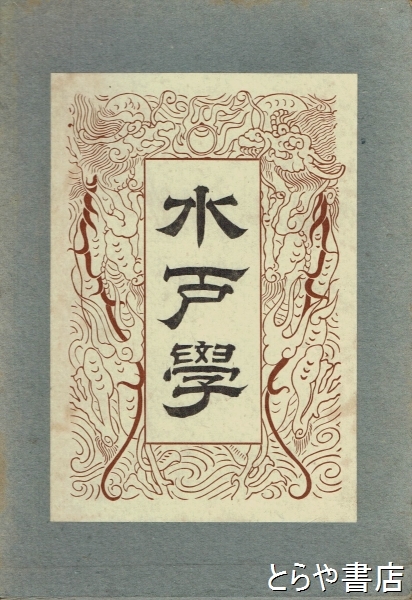 水戸學
とらや書店